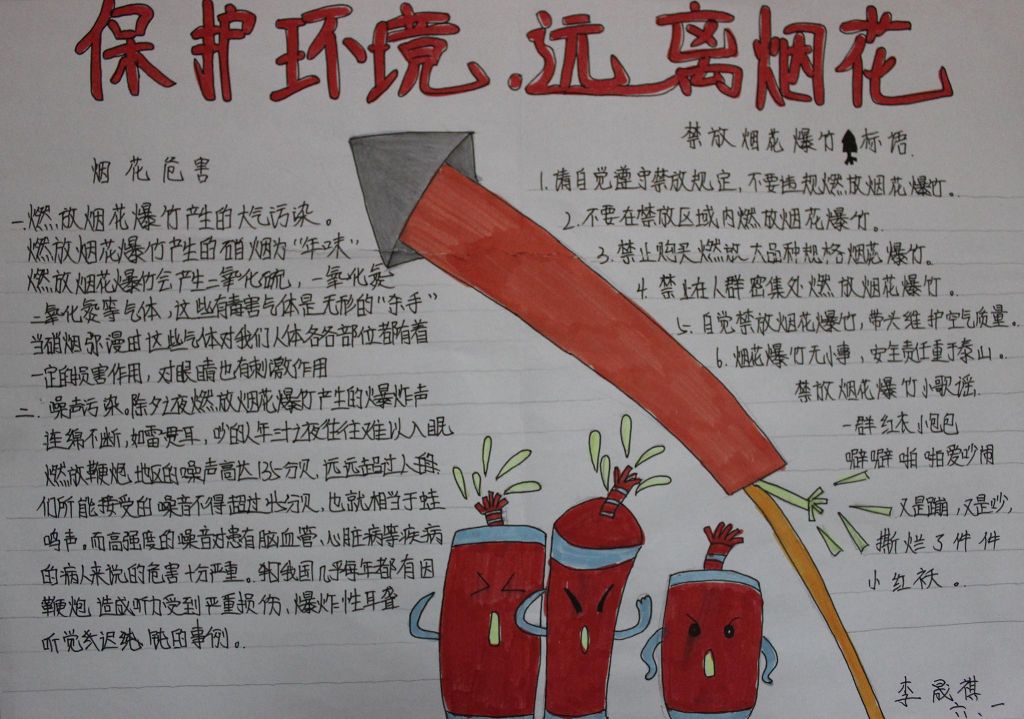 保护环境.远离烟花
烟花危害
一.燃放烟花爆竹产生的大气污染。
燃放烟花爆竹产生的硝烟为“年味”
燃放烟花爆竹会产生二氧化硫，一氧化氮
二氧化氮等气体，这些有毒害气体是无形的“杀手”
当硝烟弥漫时这些气体对我们人体各各部位都有着
一定的损害作用，对眼睛也有刺激作用
二.噪声污染。除夕之夜燃放烟花爆竹产生的爆炸声
连绵不断，如雷贯耳，吵的人年三十之夜往往难以入眠
燃放鞭炮地区的噪声高达135分贝，远远超过人
们所能接受的噪音不得超过分贝，也就相当于蛙
鸣声。而高强度的噪音对患有脑血管、心脏病等疾病
的病人来说的危害十分严重。我国几乎每年都有因
鞭炮造成听力受到严重损伤、爆炸性耳聋
听觉迟钝的事例。
禁放烟花爆竹标语.
1.请自觉遵守禁放规定，不要违规燃放烟花爆竹。
2.不要在禁放区域内燃放烟花爆竹。
3.禁止购买燃放大品种规格烟花爆竹。
4.禁止在人群密集处燃放烟花爆竹。
5.自觉禁放烟花爆竹，带头维护空气质量。
6.烟花爆竹无小事，安全责任重于泰山。
禁放烟花爆竹小歌谣.
一群红衣小炮包
噼噼啪啪爱吵闹
又是蹦，又是吵，
撕烂了件件
小红袄。
李晟祺
六、一